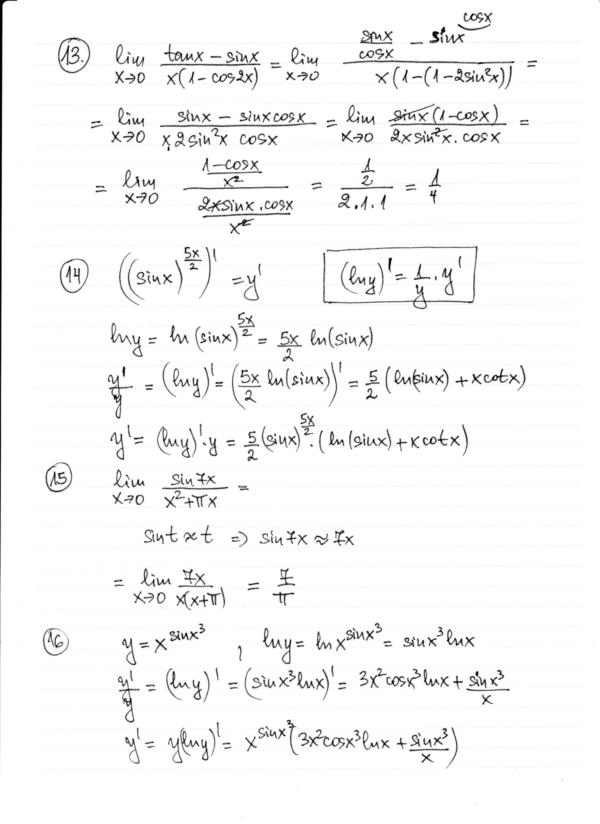 13. lim x→0 (tanx − sinx)/(x(1−cos2x)) = lim x→0 (sinx/cosx − sinx cosx)/(x(1−(1−2sin²x))) =
= lim x→0 (sinx − sinxcosx)/(x·2sin²x cosx) = lim x→0 (sinx(1−cosx))/(2xsin²x·cosx) =
= lim x→0 ((1−cosx)/x²)/((2xsinx·cosx)/x²) = (1/2)/(2·1·1) = 1/4
14 ((sinx)^(5x/2))' = y' (lny)' = 1/y · y'
lny = ln(sinx)^(5x/2) = 5x/2 ln(sinx)
y'/y = (lny)' = (5x/2 ln(sinx))' = 5/2 (ln(sinx) + xcotx)
y' = (lny)'·y = 5/2 (sinx)^(5x/2)·(ln(sinx) + xcotx)
15 lim x→0 sin7x/(x²+πx) =
sint ≈ t ⇒ sin7x ≈ 7x
= lim x→0 7x/(x(x+π)) = 7/π
16 y = x^(sinx³), lny = lnx^(sinx³) = sinx³lnx
y'/y = (lny)' = (sinx³lnx)' = 3x²cosx³lnx + sinx³/x
y' = y(lny)' = x^(sinx³)(3x²cosx³lnx + sinx³/x)